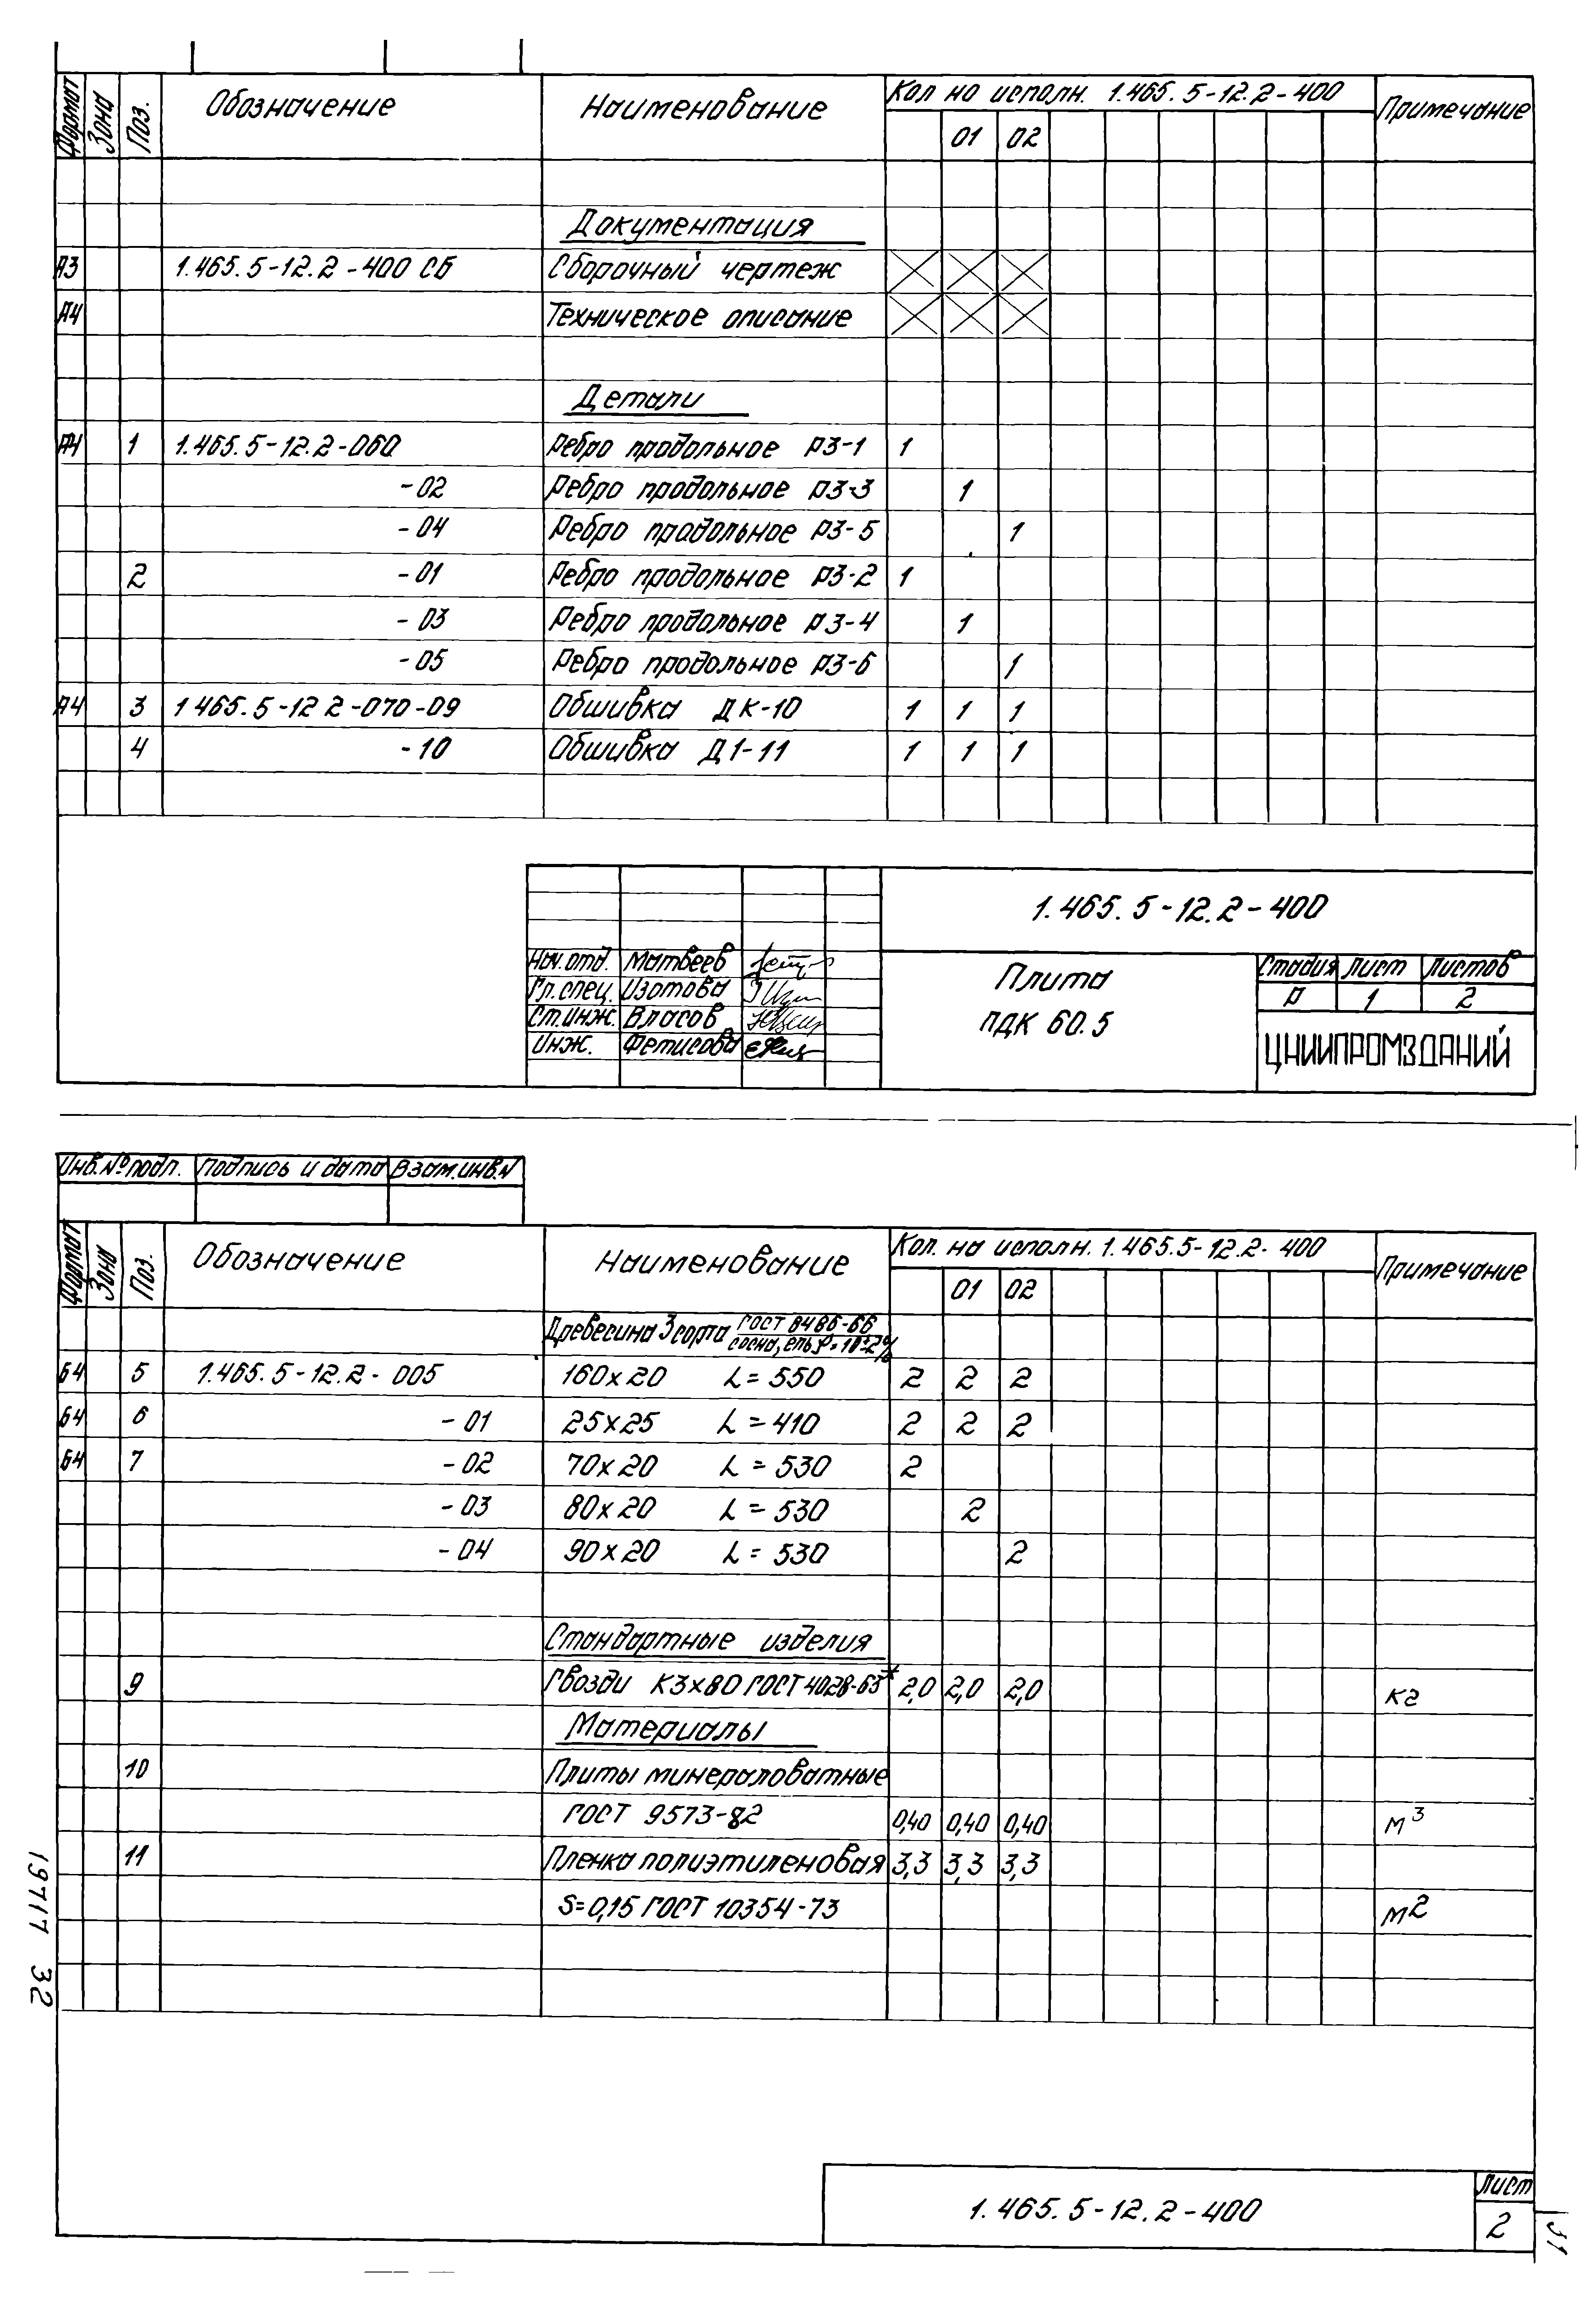 Формат Зона Поз. Обозначение Наименование Кол на исполн. 1.465.5-12.2-400 Примечание
01 02
Документация
А3 1.465.5-12.2-400 СБ Сборочный чертеж
А4 Техническое описание
Детали
А4 1 1.465.5-12.2-060 Ребро продольное Р3-1 1
-02 Ребро продольное Р3-3 1
-04 Ребро продольное Р3-5 1
2 -01 Ребро продольное Р3-2 1
-03 Ребро продольное Р3-4 1
-05 Ребро продольное Р3-6 1
А4 3 1 465.5-12 2-070-09 Обшивка ДК-10 1 1 1
4 -10 Обшивка Д1-11 1 1 1
1.465.5-12.2-400
Нач.отд. Матвеев
Гл.спец. Изотова
Ст.инж. Власов
Инж. Фетисова
Плита
ПДК 60.5
Стадия Лист Листов
Р 1 2
ЦНИИПРОМЗДАНИЙ
Инв.№подл. Подпись и дата Взам.инв.№
Формат Зона Поз. Обозначение Наименование Кол. на исполн. 1.465.5-12.2-400 Примечание
01 02
Древесина 3 сорта ГОСТ 8486-66
сосна, ель
Б4 5 1.465.5-12.2-005 160х20 L=550 2 2 2
Б4 6 -01 25х25 L=410 2 2 2
Б4 7 -02 70х20 L=530 2
-03 80х20 L=530 2
-04 90х20 L=530 2
Стандартные изделия
9 Гвозди К3х80 ГОСТ 4028-63* 2,0 2,0 2,0 кг
Материалы
10 Плиты минераловатные
ГОСТ 9573-82 0,40 0,40 0,40 м³
11 Пленка полиэтиленовая 3,3 3,3 3,3
S=0,15 ГОСТ 10354-73 м2
1.465.5-12.2-400
Лист
2
19717 32
31